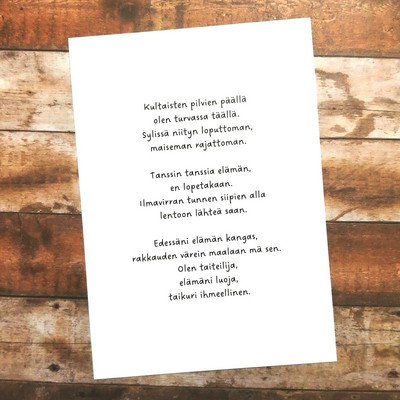 Kultaisten pilvien päällä
olen turvassa täällä.
Sylissä niityn loputtoman,
maiseman rajattoman.
Tanssin tanssia elämän,
en lopetakaan.
Ilmavirran tunnen siipien alla
lentoon lähteä saan.
Edessäni elämän kangas,
rakkauden värein maalaan mä sen.
Olen taiteilija,
elämäni luoja,
taikuri ihmeellinen.